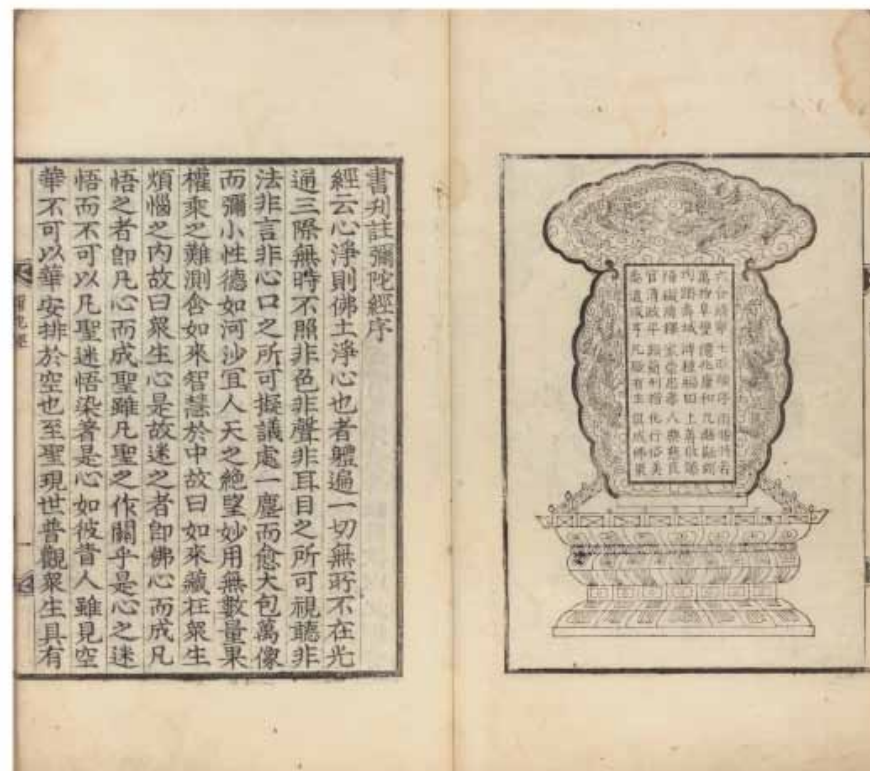 六合靖寧 七政順序 雨暘時若
萬物阜豐 億兆康和 九幽融朗
均躋壽域 溥種福田 上善攸臻
障礙消釋 家崇忠孝 人樂慈良
官清政平 訟簡刑措 化行俗美
泰道咸亨 凡厥有生 俱成佛果
書刋註彌陀經序
經云心淨則佛土淨心也者軆遍一切無所不在光
通三際無時不照非色非聲非耳目之所可視聽非
法非言非心口之所可擬議處一塵而愈大包萬像
而彌小性德如河沙冝人天之絶望妙用無數量果
權乘之難測含如來智慧於中故曰如來藏在衆生
煩惱之内故曰衆生心是故迷之者卽佛心而成凡
悟之者卽凡心而成聖雖凡聖之作關乎是心之迷
悟而不可以凡聖迷悟染著是心如彼眚人雖見空
華不可以華安排於空也至聖現世普觀衆生具有
彌陀經 一